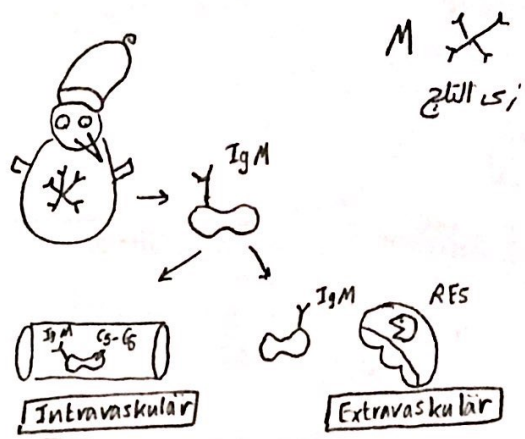 M
زى التلج
IgM
IgM C5-C9
Intravaskulär
IgM RES
Extravaskulär